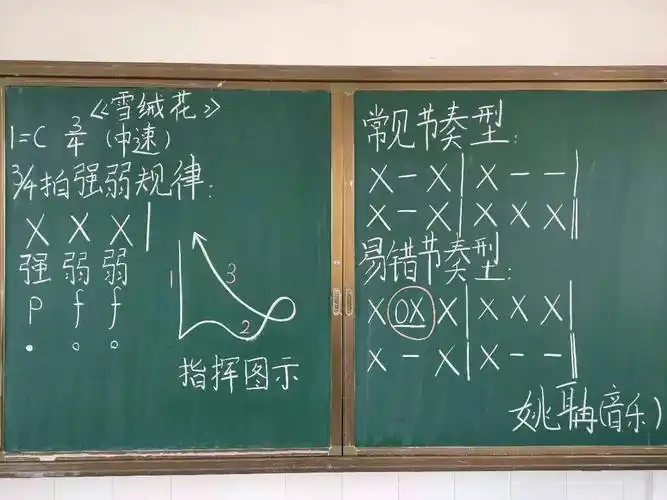 《雪绒花》
1=C 3/4 (中速)
3/4拍强弱规律:
X X X |
强 弱 弱
p f f
1 3 2
指挥图示
常见节奏型:
X - X | X - - |
X - X | X X X ‖
易错节奏型:
X 0X X | X X X |
X - X | X - - ‖
姚 (音乐)